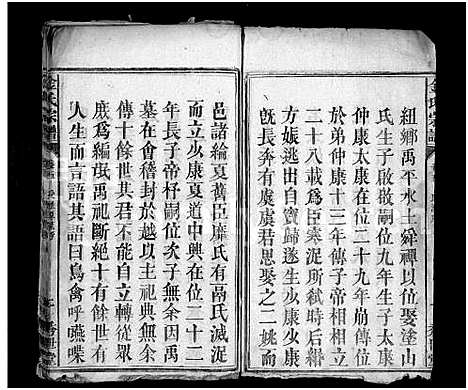 紐鄉禹平水土舜禪以位娶塗山
氏生子啟敬嗣位九年生子太康
仲康太康在位二十九年崩傳位
於弟仲康十三年傳子帝相帝相
二十八載爲臣寒浞所弒時后相
既長奔有虞虞君思娶之二姚
邑諸綸夏舊臣靡氏有鬲氏滅浞
而立少康夏道中興在位二十二
年長子帝杼嗣位次子無余因禹
墓在會稽封於越以主祀典無余
傳十餘世其君不能自立轉從眾
庶爲編氓禹祀斷絕十有餘世有
人生而言語其語曰鳥禽呼嚥喋
金氏宗譜